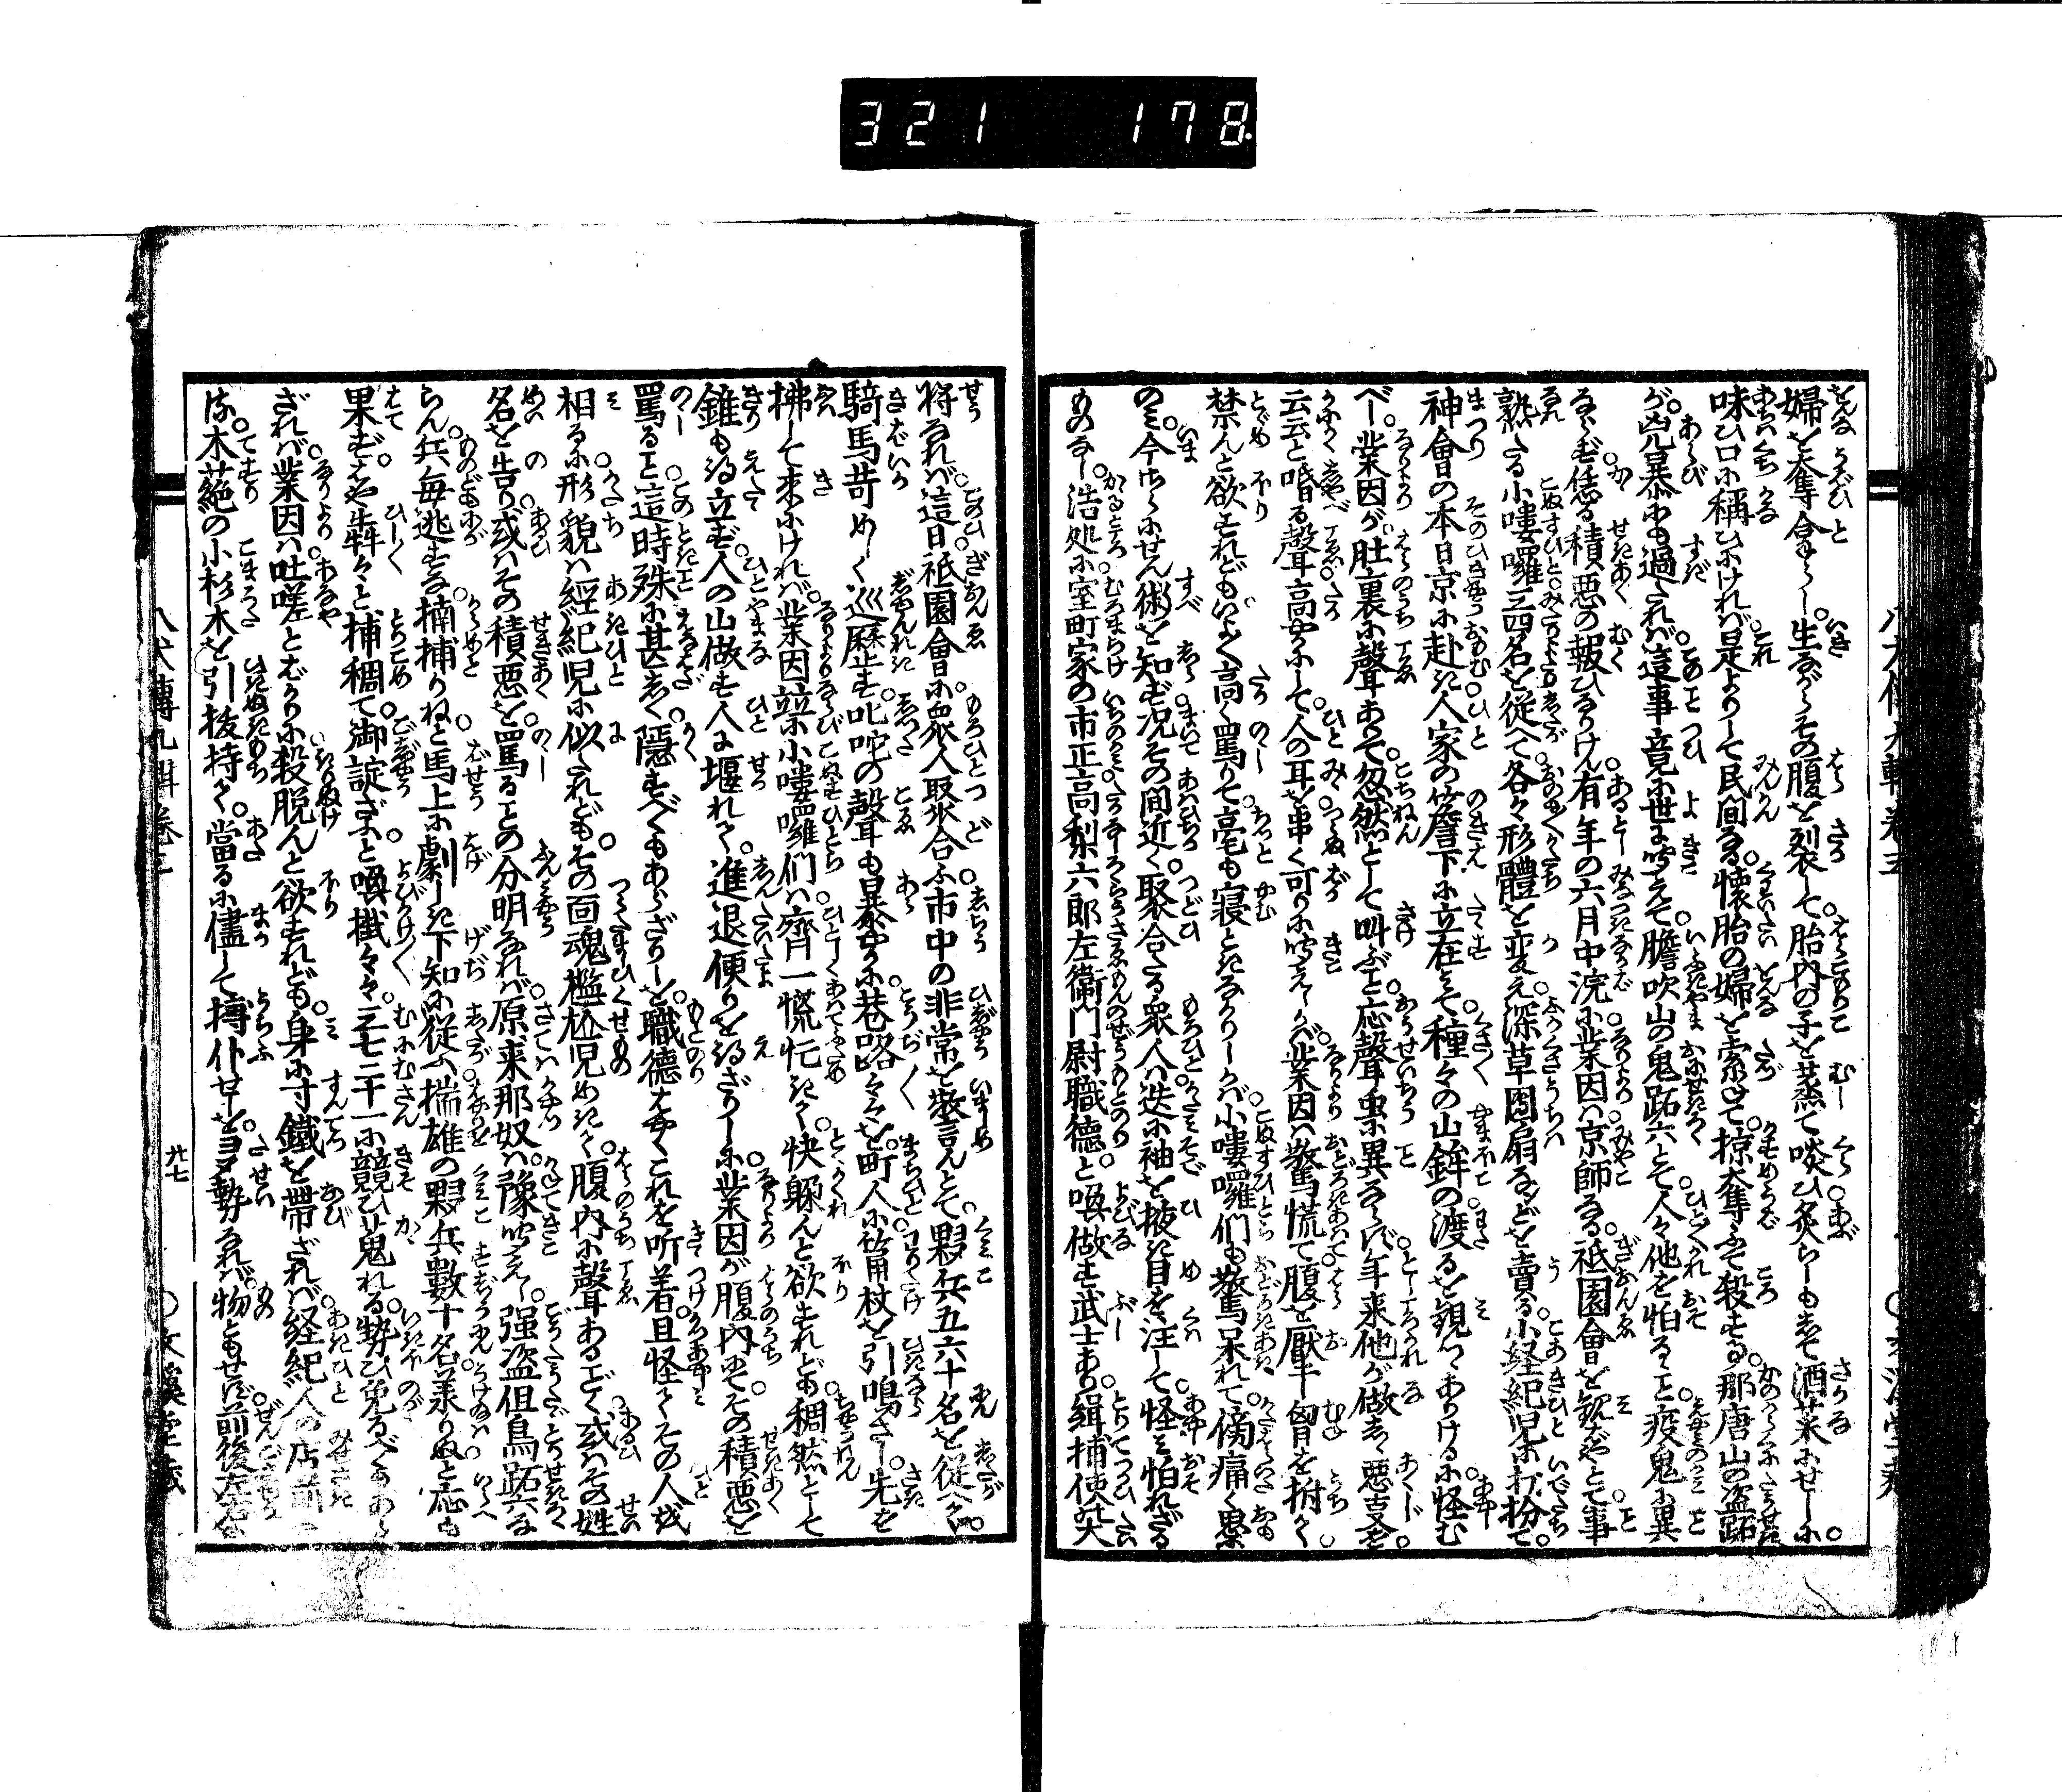 321 178
婦を奪拿らし。生ながらその腹を裂して胎内の子を蒸て啖ひ炙らしもして酒菜にせしに
味ひ口に稱ひにければ是よりして民間なる懐胎の婦を索ねて掠奪ふて殺する。那唐山の盗跖
が。兇暴にも過たれば這事竟に世に聞えて膽吹山の鬼跖六とて人々他を怕るゝこと疫鬼に異
ならず。恁る積悪の報ひなりけん有年の六月中浣に業因は京師なる。祇園會を観ばやとて事
熟たる小嘍囉三四名を従へて各々形體を変え深草團扇などを賣る小経紀児に打扮て。
神會の本日京に赴き人家の簷下に立在て種々の山鉾の渡るを観つゝありける小怪む
べし業因が肚裏に聲ありて忽然として叫ぶこと応聲虫に異ならず年来他が做しゝ悪事を
云云と唱る聲高やかにして人の耳を串く可りに聞えしかば業因は驚慌て腹を壓半胸を拊て
禁んと欲すれどもいよゝ高く罵りて毫も寝ときなかりしかば小嘍囉們も驚呆れて傍痛く思
のみ。今さらにせん術を知ず况その間近く聚合たる衆人は迭に袖を掖き目を注して怪み怕れざる
ものなし。浩処に室町家の市正高梨六郎左衛門尉職徳と喚做す武士あり緝捕使の大
将なれば這日祇園會に衆人聚合ふ市中の非常を警んとて夥兵五六十名を従へつゝ。
騎馬苛めしく巡歴す叱咤の聲も暴やかに巷路々々を町人に笛杖を引鳴さし先を
拂して来にければ業因並に小嘍囉們は齊一慌忙きて快躱んと欲すれども稠然として
錐も得立ず人の山做す人に堰れて進退便りを得ざりしに業因が腹内にてその積悪を
罵ること這時殊に甚しく隠すべくもあらざりしを職徳はやくこれを听着且怪みてその人を
相るに形貌は経紀児に似たれどもその面魂檻尬児めきて腹内に聲あること或はその姓
名を告り或はその積悪を罵ることの分明なれば原来那奴は豫聞えし。强盗但鳥跖六な
らん。兵毎逃すな搦捕りねと馬上に劇しき下知に従ふ揣雄の夥兵数十名承りぬと応も
果ず。はや犇々と捕稠て御諚ざふと喚掛々々三七二十一に競ひ蒐れる勢ひ免るべくもあら
ざれば業因は吐嗟とばかりに殺脱んと欲すれども身に寸鐵を帶ざれば経紀人の店前に
は。木蓏の小杉木を引抜持て當るに儘して搏仆せしをヨヨ勢なれば物ともせず前後左右より
八犬傳九輯巻三
廿七
〇文溪堂藏